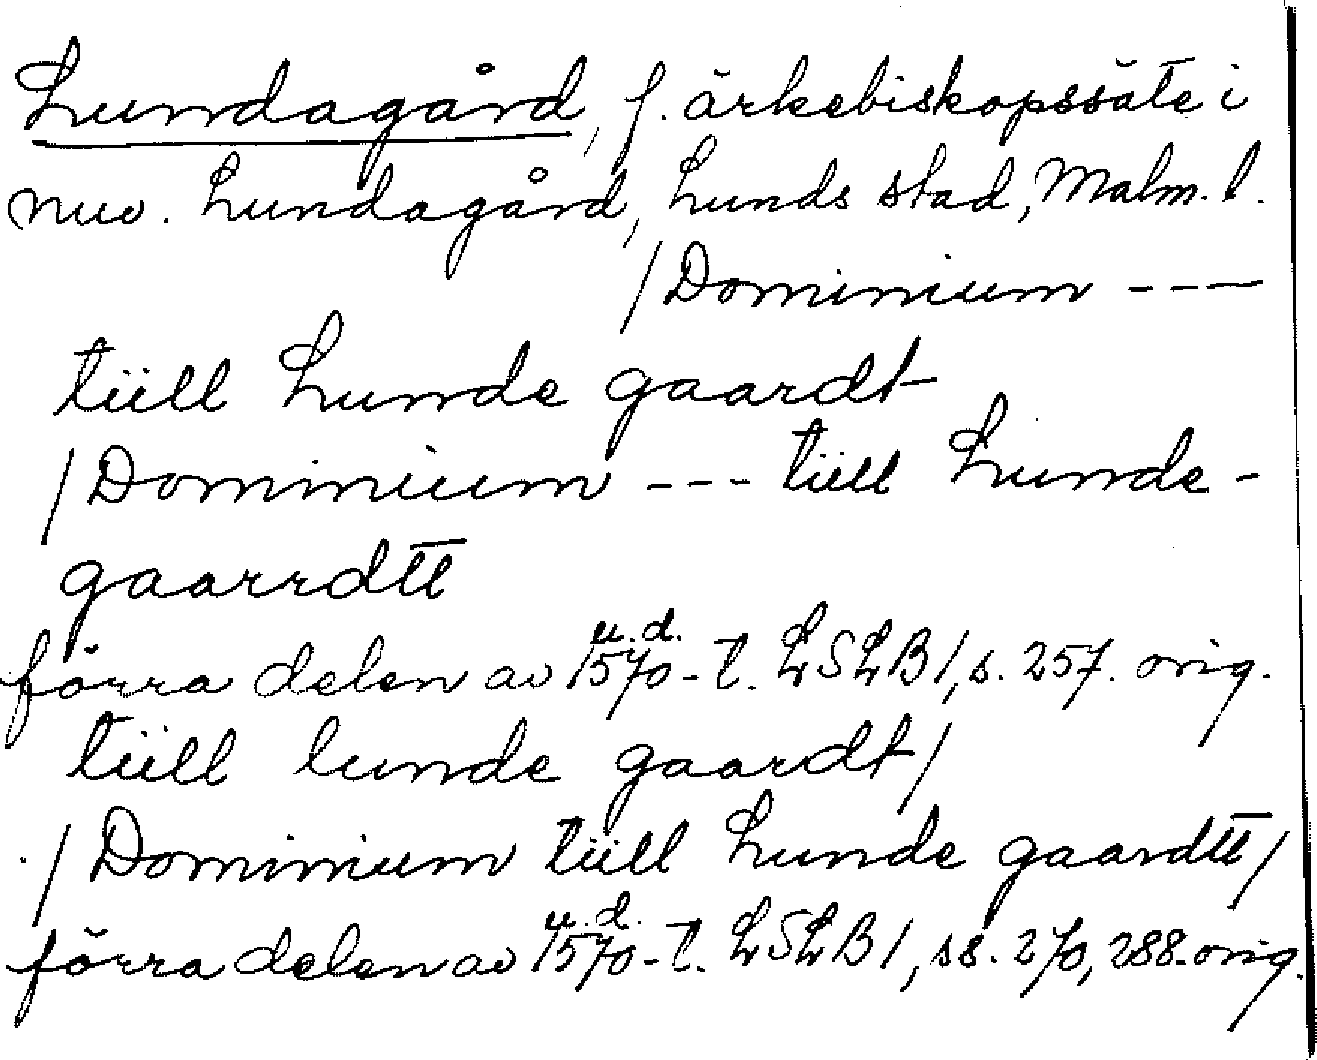 Lundagård, f. ärkebiskopssäte i
nuv. Lundagård, Lunds stad, Malm. l.
/Dominium ---
tiill Lunde gaardt
/Dominium --- tiill Lunde-
gaarrdtt
u. d.
förra delen av 1570-t. LSLB 1, s. 257. orig.
tiill lunde gaardt/
/Dominium tiill Lunde gaardtt/
u. d.
förra delen av 1570-t. LSLB 1, ss. 270, 288. orig.